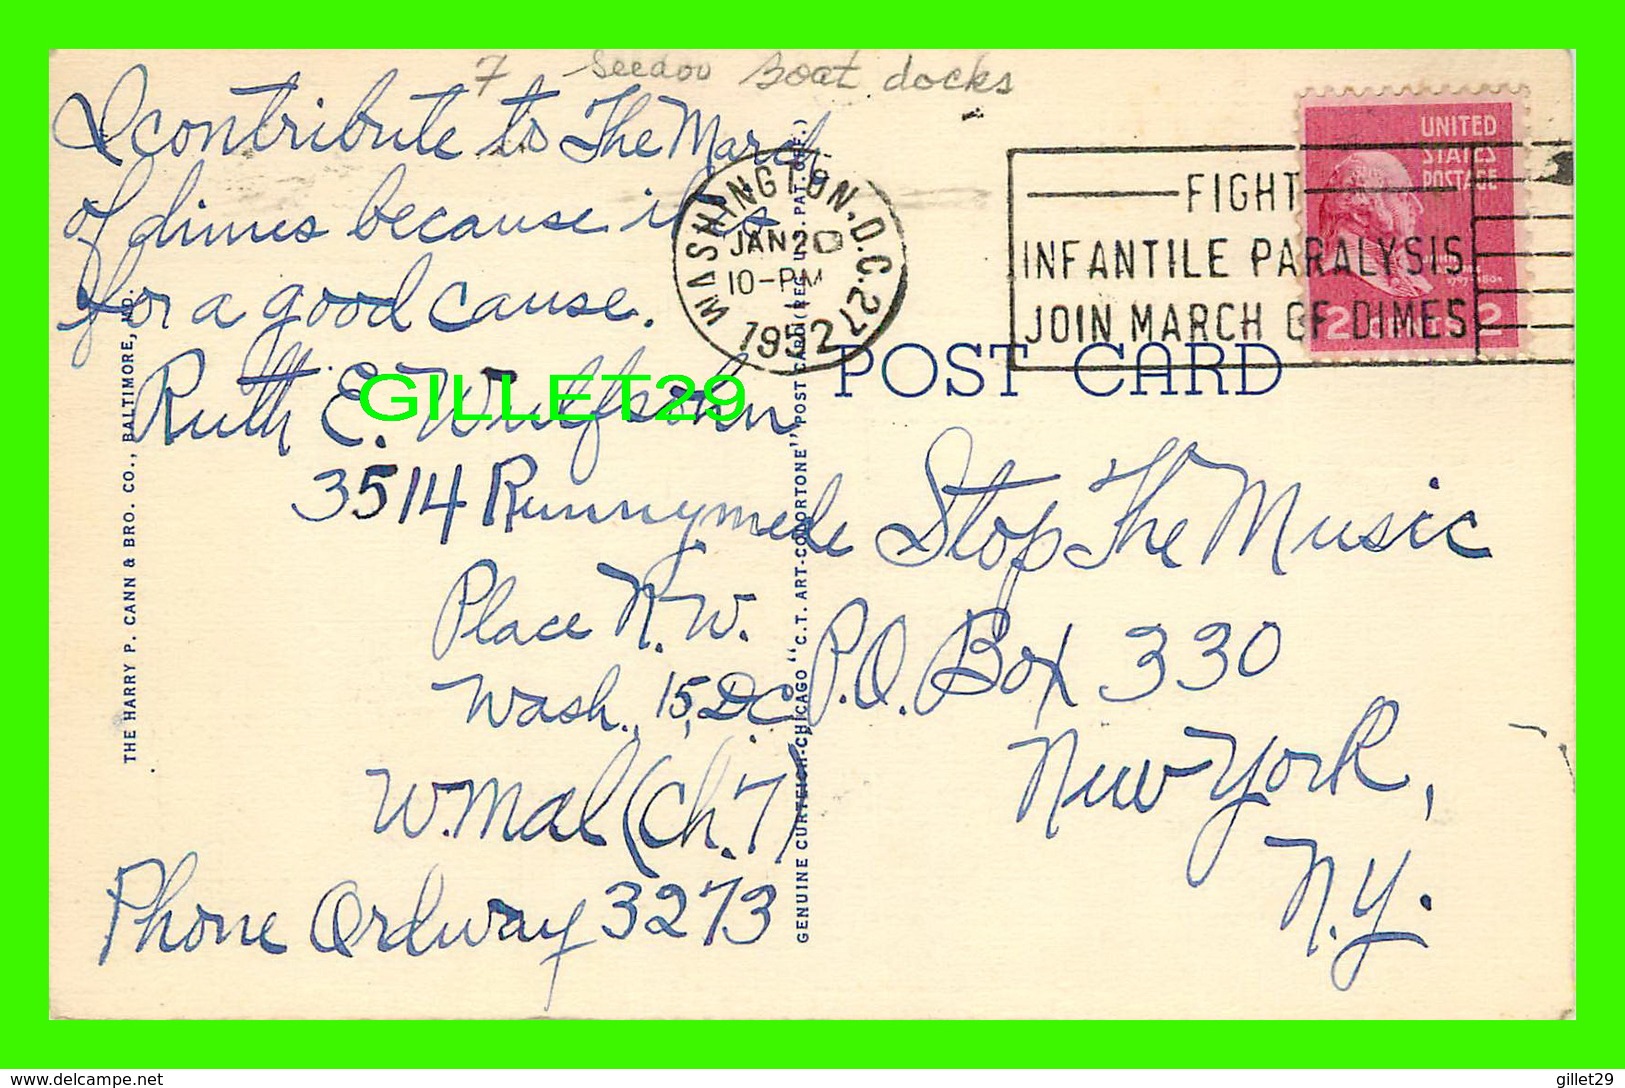 7 boat docks
I contribute to The March
of dimes because it is
for a good cause.
Ruth E. Wulfsohn
3514 Runnymede
Place N.W.
Wash., 15, D.C.
W.mal (Ch. 7)
Phone Ordway 3273
WASHINGTON. D.C. 27
JAN 20
10-PM
1952
FIGHT
INFANTILE PARALYSIS
JOIN MARCH OF DIMES
UNITED
STATES
POSTAGE
2 CENTS 2
POST CARD
Stop The Music
P.O. Box 330
New York,
N.Y.
THE HARRY P. CANN & BRO. CO., BALTIMORE, MD.
GENUINE CURTEICH-CHICAGO "C.T. ART-COLORTONE" POST CARD (REG. U.S. PAT. OFF.)
GILLET29
delcampe.net
gillet29